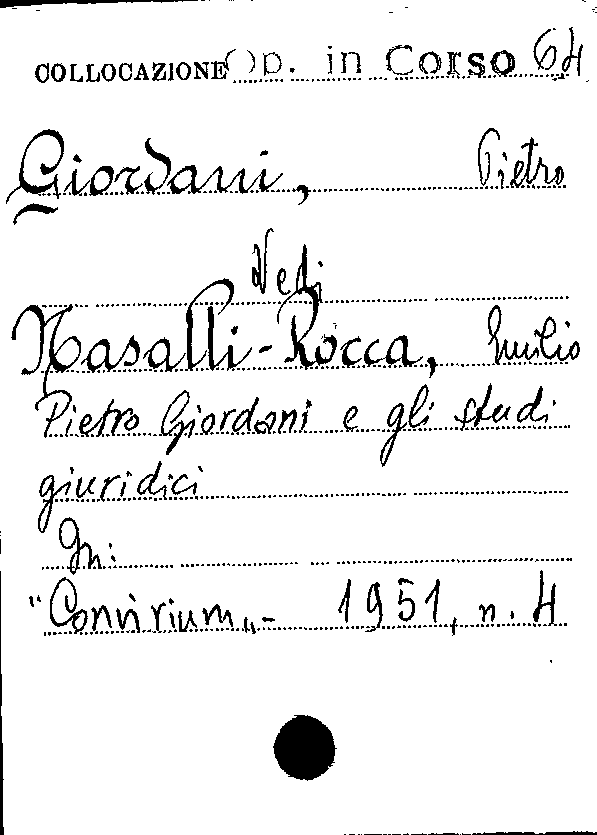 COLLOCAZIONE Op. in Corso 64
Giordani, Pietro
Vedi
Nasalli-Rocca, Emilio
Pietro Giordani e gli studi
giuridici
In:
"Convivium„- 1951, n. 4